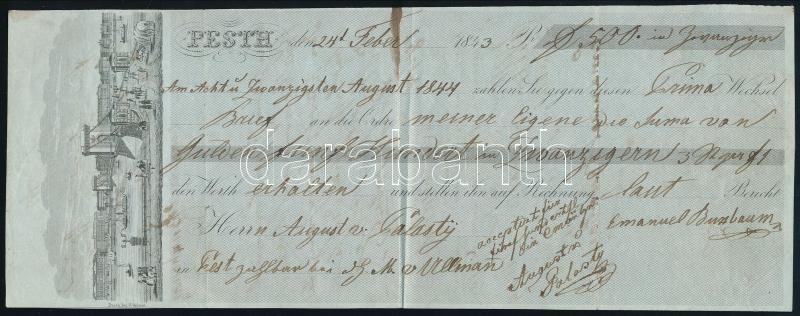 PESTH den 24t Feber 1843 Pr f 500. in Zwanziger
Am Acht u Zwanzigsten August 1844 zahlen Sie gegen diesen Prima Wechsel
Brief an die Ordre meiner Eigene die Suma von
Gulden fünf Hundert in Zwanzigern 3 Stück pr f1
den Werth erhalten und stellen ihn auf Rechnung laut Bericht
Herrn August v Pálasty
Emanuel Buxbaum
in Pest zahlbar bei H. M. v Ullman
acceptirt für
Augustin
Palasty
darabanth